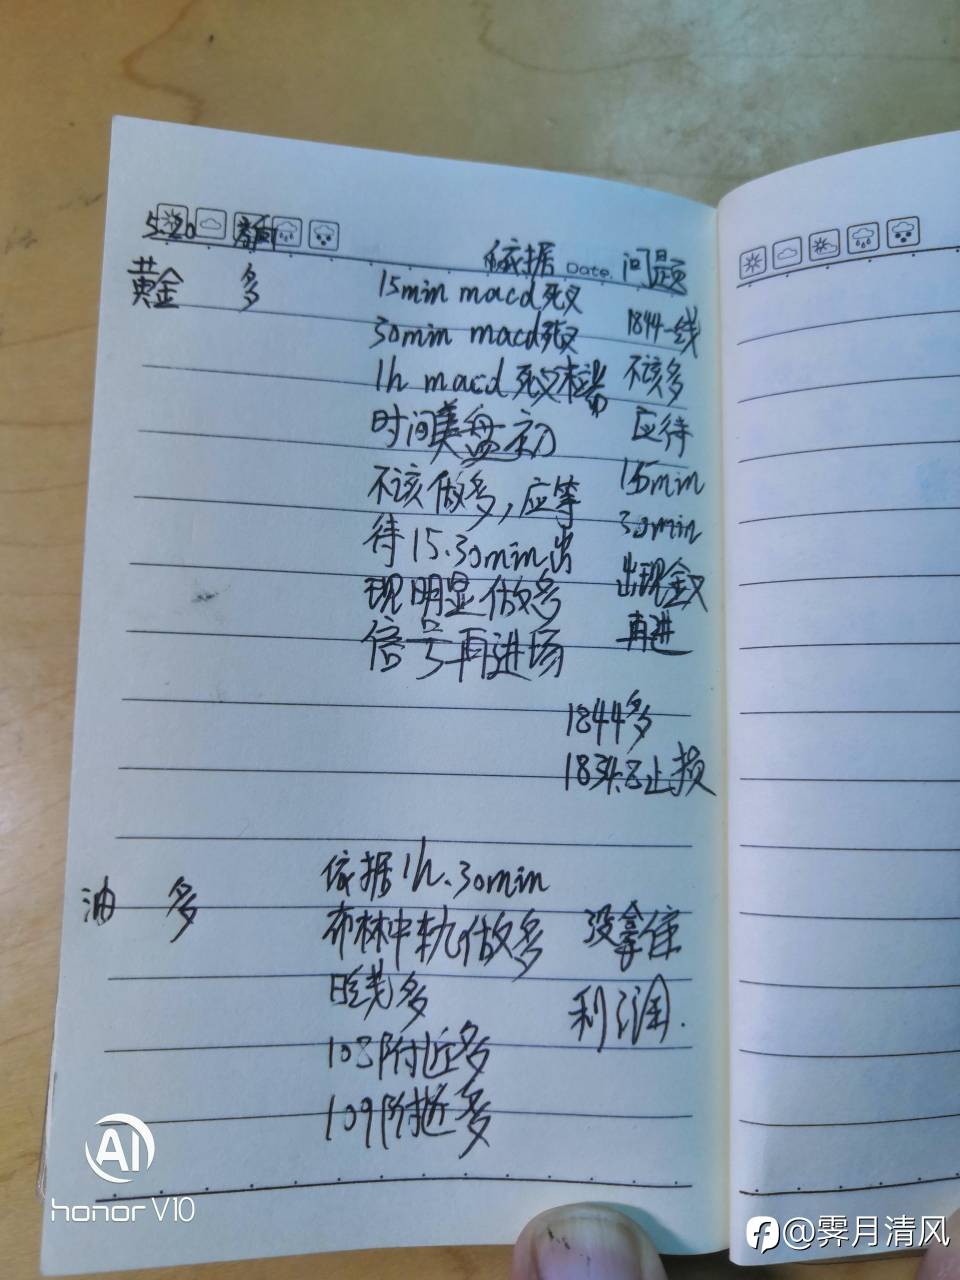 5.20
依据 Date. 问题
黄金 多
15min macd死叉
30min macd死叉
1h macd 死叉
时间美盘初
不该做多，应等
待15.30min出
现明显做多
信号再进场
1844一线
不该多
应待
15min
30min
出现金叉
再进
1844多
1834.8止损
油 多
依据1h.30min
布林中轨做多
日线多
108附近多
109附近多
没拿住
利润.
AI
honor V10
@霁月清风